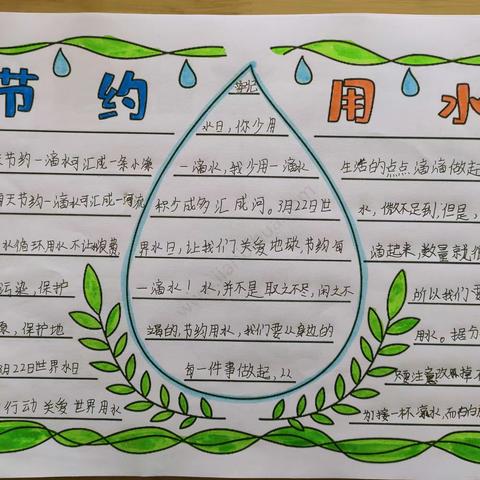 节约
用水
天节约一滴水可汇成一条小溪
每天节约一滴水可汇成一河流
水循环用水不让浪费
污染，保护
源，保护地
3月22日世界水日
行动 关爱 世界用水
牢记
水日，你少用
一滴水，我少用一滴水
积少成多 汇成河。3月22日世
界水日，让我们关爱地球，节约每
一滴水！水，并不是取之不尽，用之不
竭的，节约用水，我们要从身边的
每一件事做起，从
生活的点点滴滴做起
水，微不足到，但是，
滴起来，数量就很
所以我们要
用水。据分
如接一杯凉水，而白白